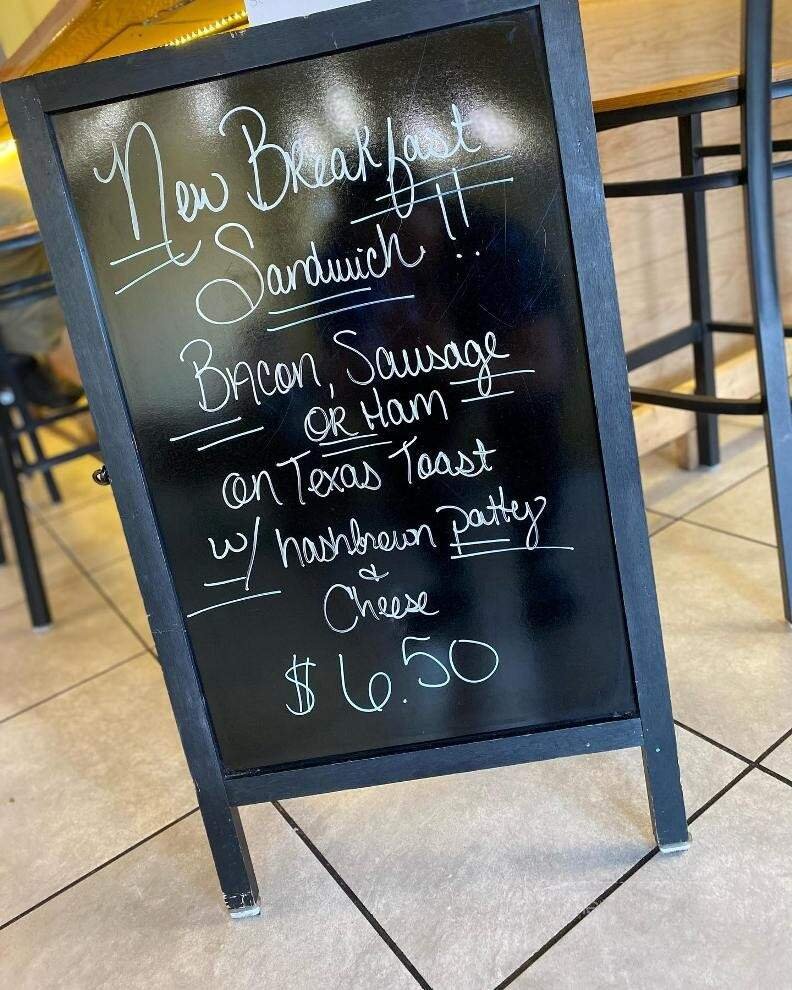 New Breakfast
Sandwich !!
Bacon, Sausage
OR Ham
on Texas Toast
w/ hashbrown patty
&
Cheese
$6.50